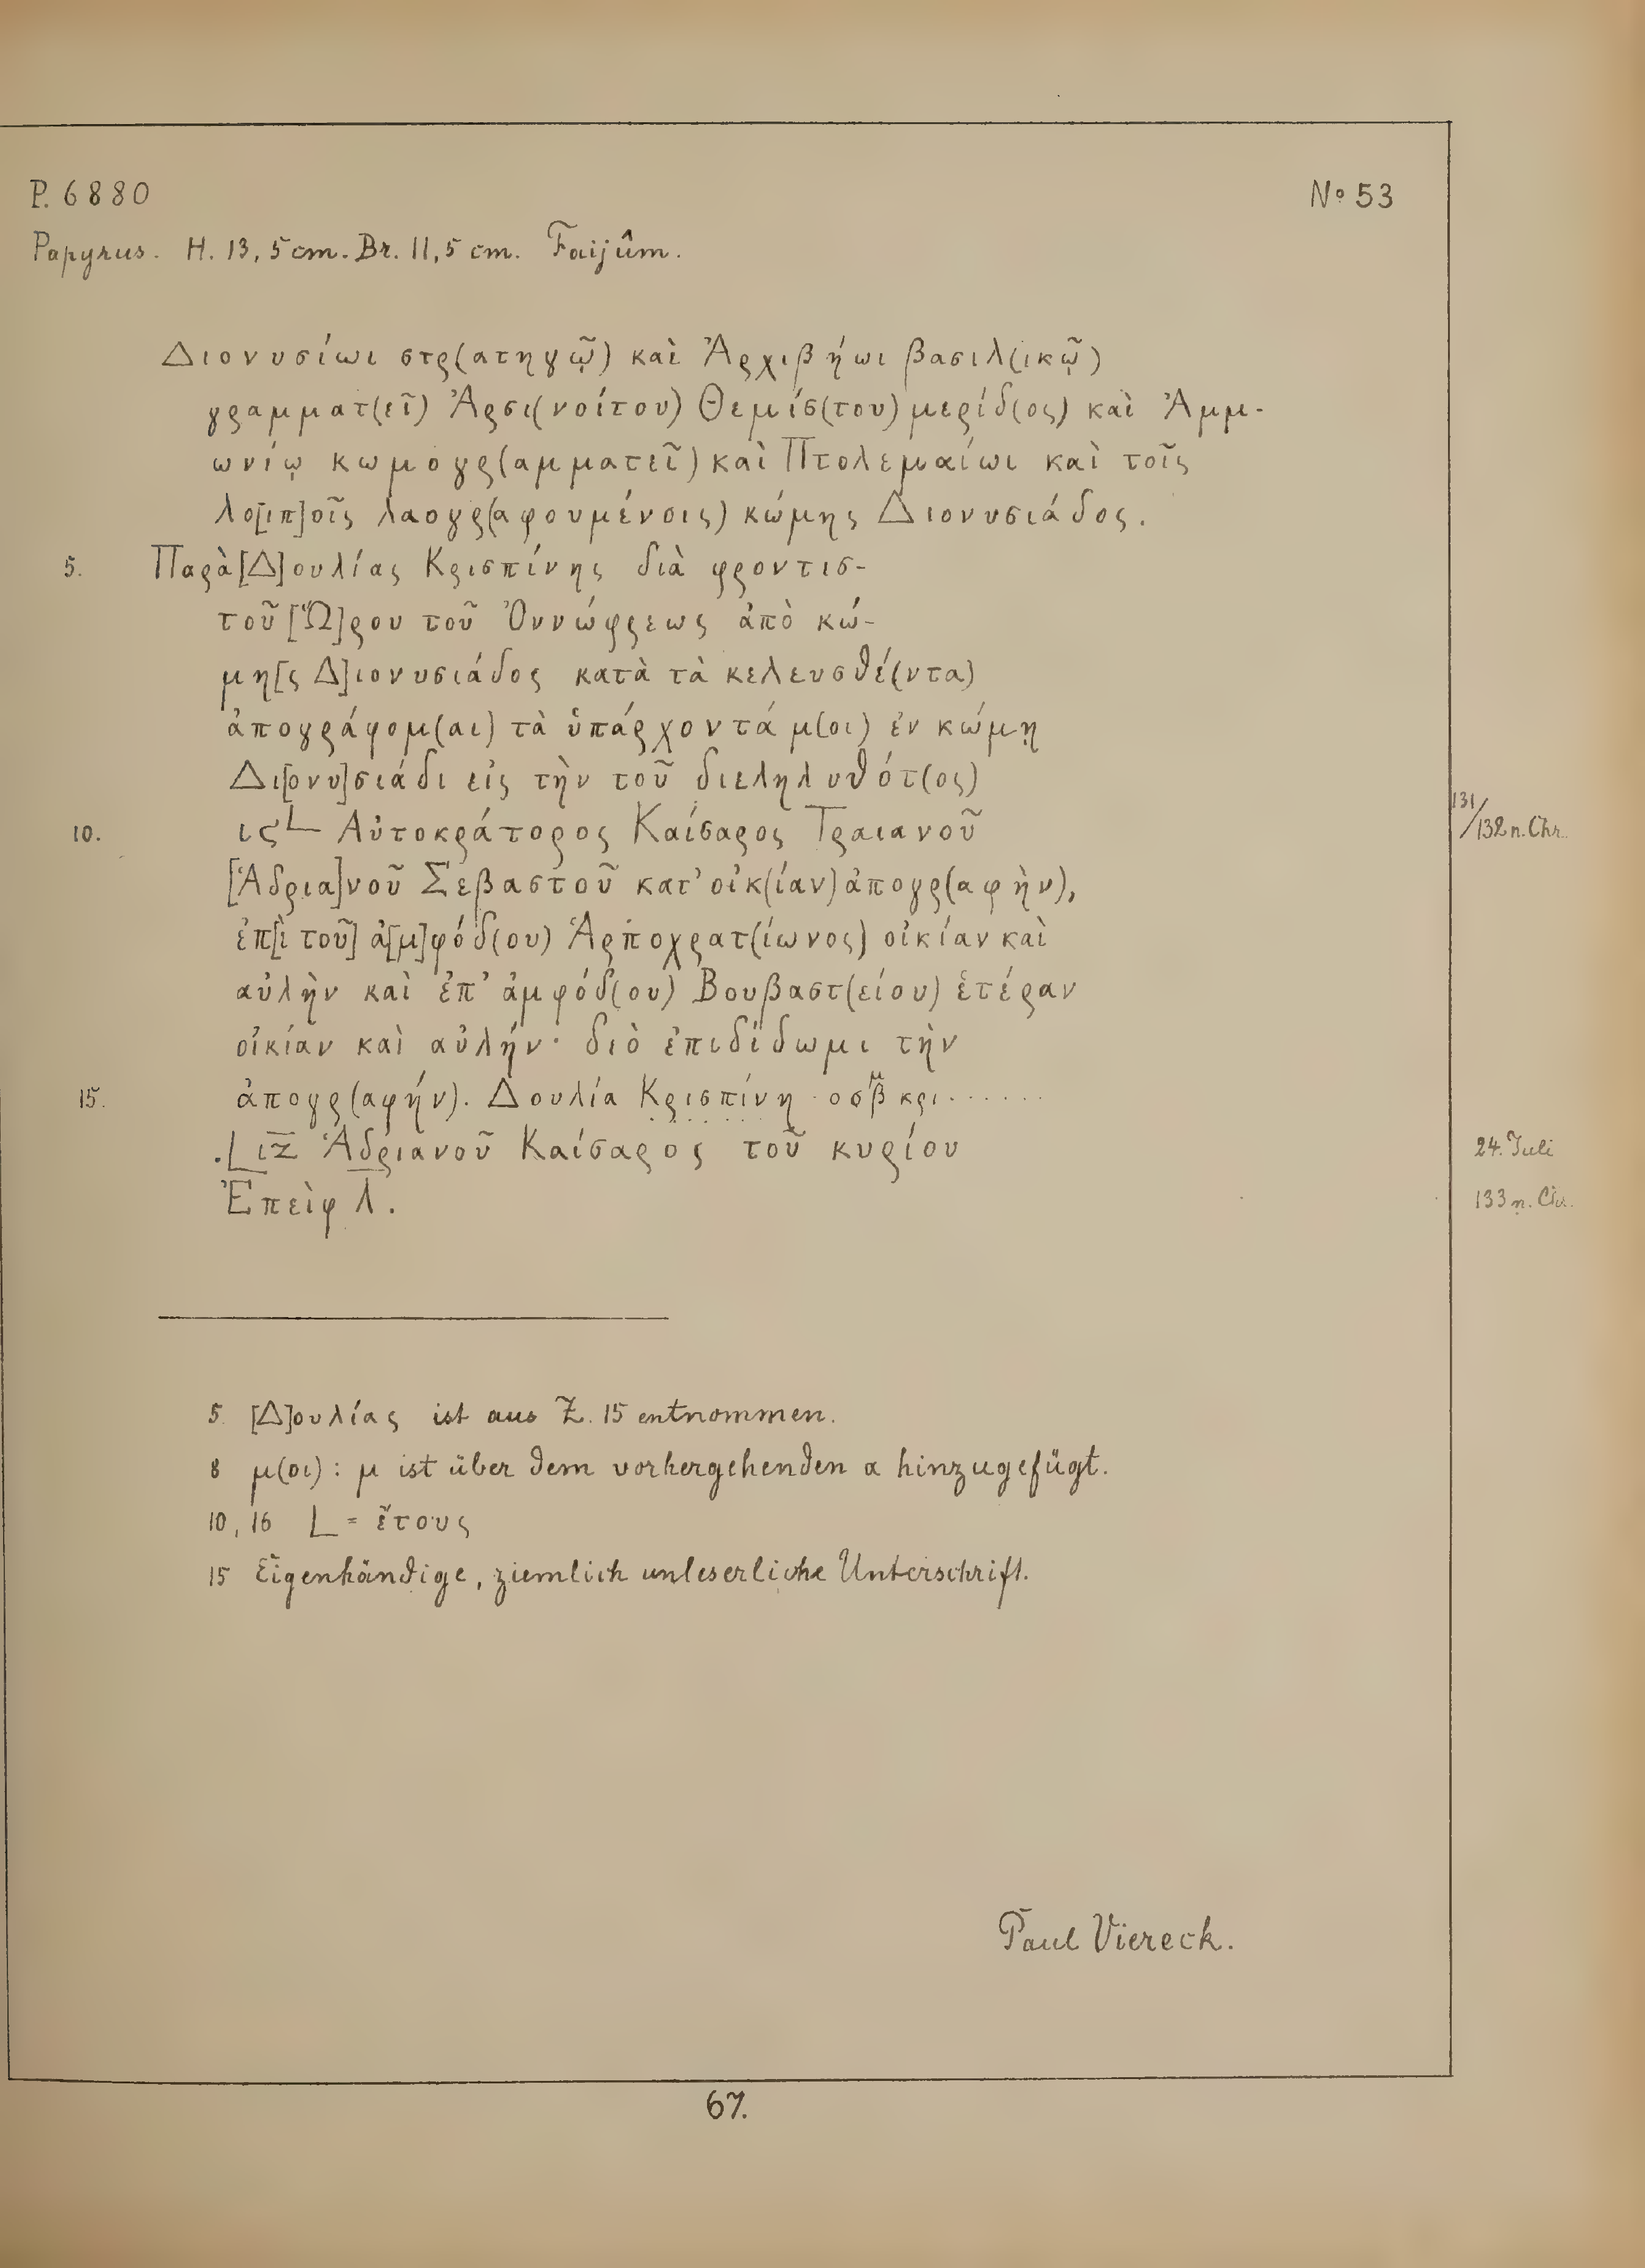 P. 6880
No 53
Papyrus. H. 13,5 cm. Br. 11,5 cm. Faijûm.
Διονυσίωι στρ(ατηγῷ) καὶ Ἀρχιβήωι βασιλ(ικῷ)
γραμματ(εῖ) Ἀρσι(νοίτου) Θεμίσ(του) μερίδ(ος) καὶ Ἀμμ-
ωνίῳ κωμογρ(αμματεῖ) καὶ Πτολεμαίωι καὶ τοῖς
λο[ιπ]οῖς λαογρ(αφουμένοις) κώμης Διονυσιάδος.
5. Παρὰ [Δ]ουλίας Κρισπίνης διὰ φροντισ-
τοῦ [Ὥ]ρου τοῦ Ὀννώφρεως ἀπὸ κώ-
μη[ς Δ]ιονυσιάδος κατὰ τὰ κελευσθέ(ντα)
ἀπογράφομ(αι) τὰ ὑπάρχοντά μ(οι) ἐν κώμῃ
Δι[ονυ]σιάδι εἰς τὴν τοῦ διεληλυθότ(ος)
10. ιϛ L Αὐτοκράτορος Καίσαρος Τραιανοῦ
131/132 n. Chr.
[Ἁδρια]νοῦ Σεβαστοῦ κατ' οἰκ(ίαν) ἀπογρ(αφὴν),
ἐπ[ὶ τοῦ] ἀ[μ]φόδ(ου) Ἁρποχρατ(ίωνος) οἰκίαν καὶ
αὐλὴν καὶ ἐπ' ἀμφόδ(ου) Βουβαστ(είου) ἑτέραν
οἰκίαν καὶ αὐλήν· διὸ ἐπιδίδωμι τὴν
15. ἀπογρ(αφήν). Δουλία Κρισπίνη · οσβ̅ μ κρι......
.L ιζ̅ Ἁδριανοῦ Καίσαρος τοῦ κυρίου
24. Juli
Ἐπεὶφ λ̅.
133 n. Chr.
5. [Δ]ουλίας ist aus Z. 15 entnommen.
8 μ(οι): μ ist über dem vorhergehenden α hinzugefügt.
10, 16 L = ἔτους
15 Eigenhändige, ziemlich unleserliche Unterschrift.
Paul Viereck.
67.